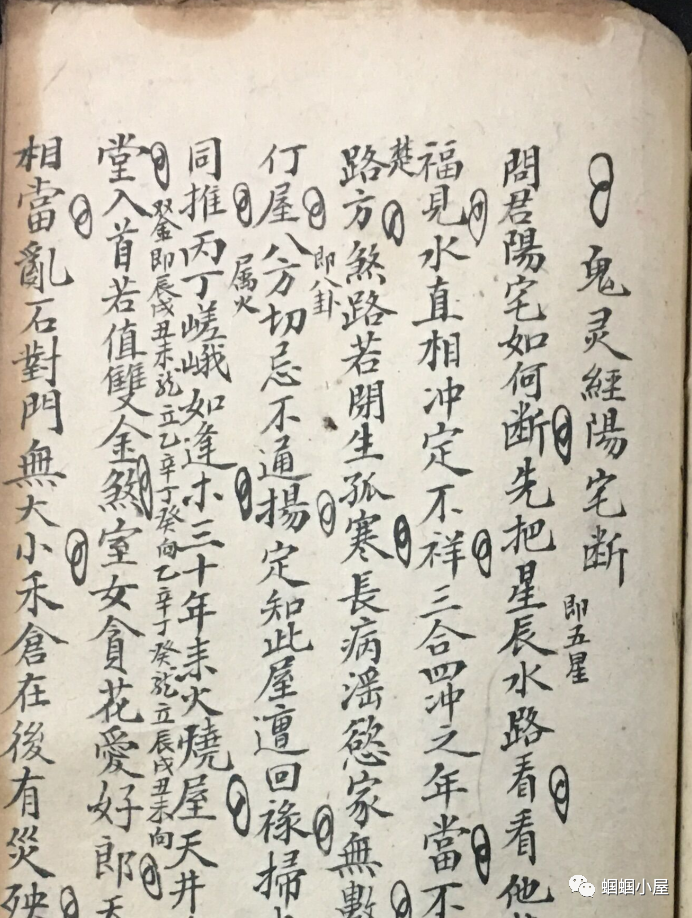 鬼灵經陽宅断
問君陽宅如何断先把星辰水路看看他
即五星
福見水直相冲定不祥三合四冲之年當不
楚
路方煞路若開生孤寒長病滛慾家無數
仃屋八方切忌不通揚定知此屋遭回祿掃
即八卦
同推丙丁嵯峨如逢木三十年来火燒屋天井
属火
堂入首若值雙金煞室女貪花愛好郎天
双金即辰戌丑未龙立乙辛丁癸向乙辛丁癸龙立辰戌丑未向
相當亂石對門無大小禾倉在後有災殃
蝈蝈小屋